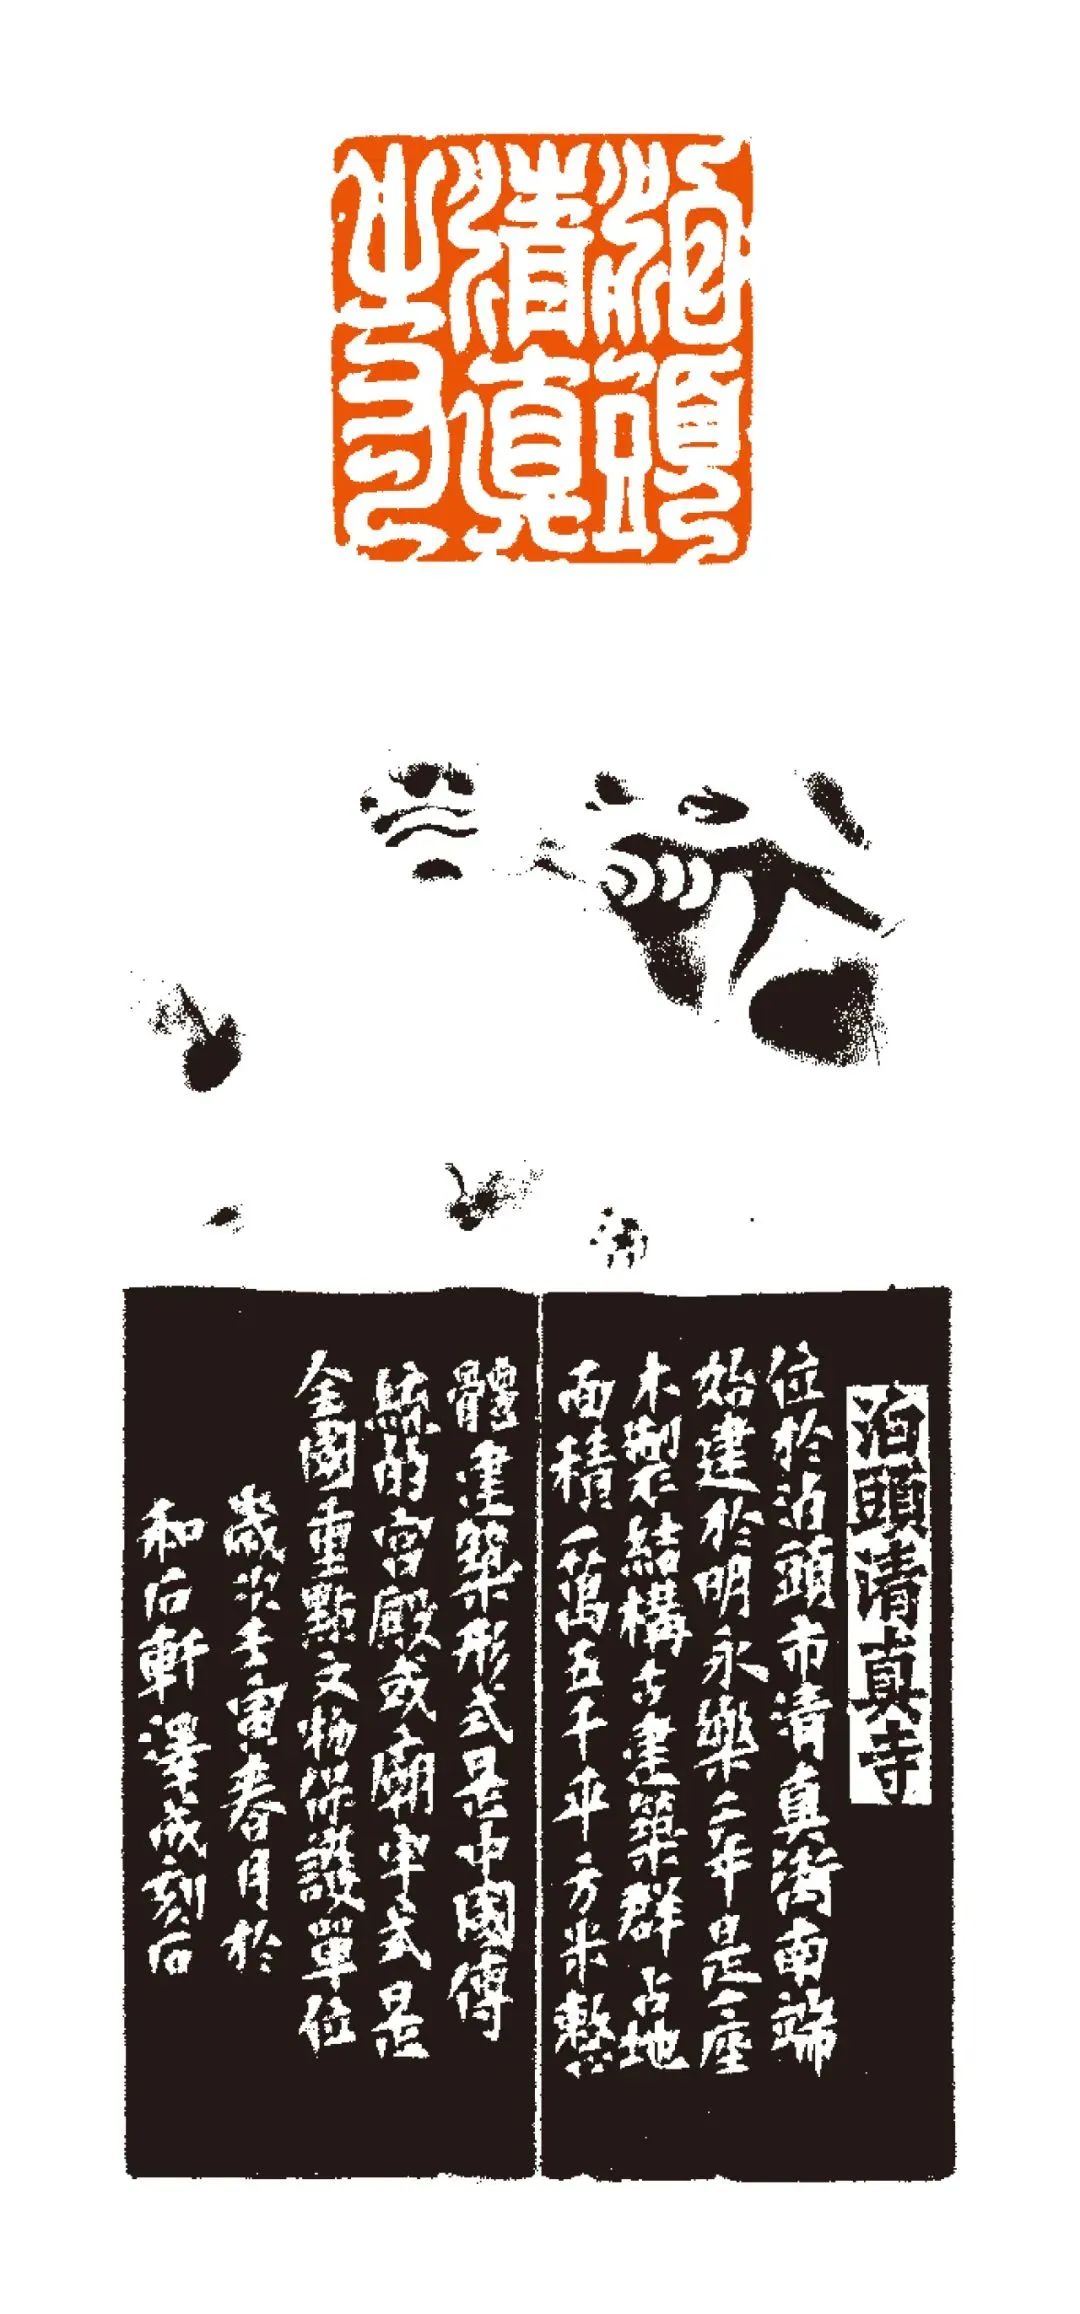 泊頭
清真
寺
泊頭清真寺
位於泊頭市清真街南端
始建於明永樂二年是一座
木製結構古建築群占地
面積一萬五千平方米整
體建築形式是中國傳
統的宮殿或廟宇式是
全國重點文物保護單位
歲次壬寅春月於
和石軒澤成刻石